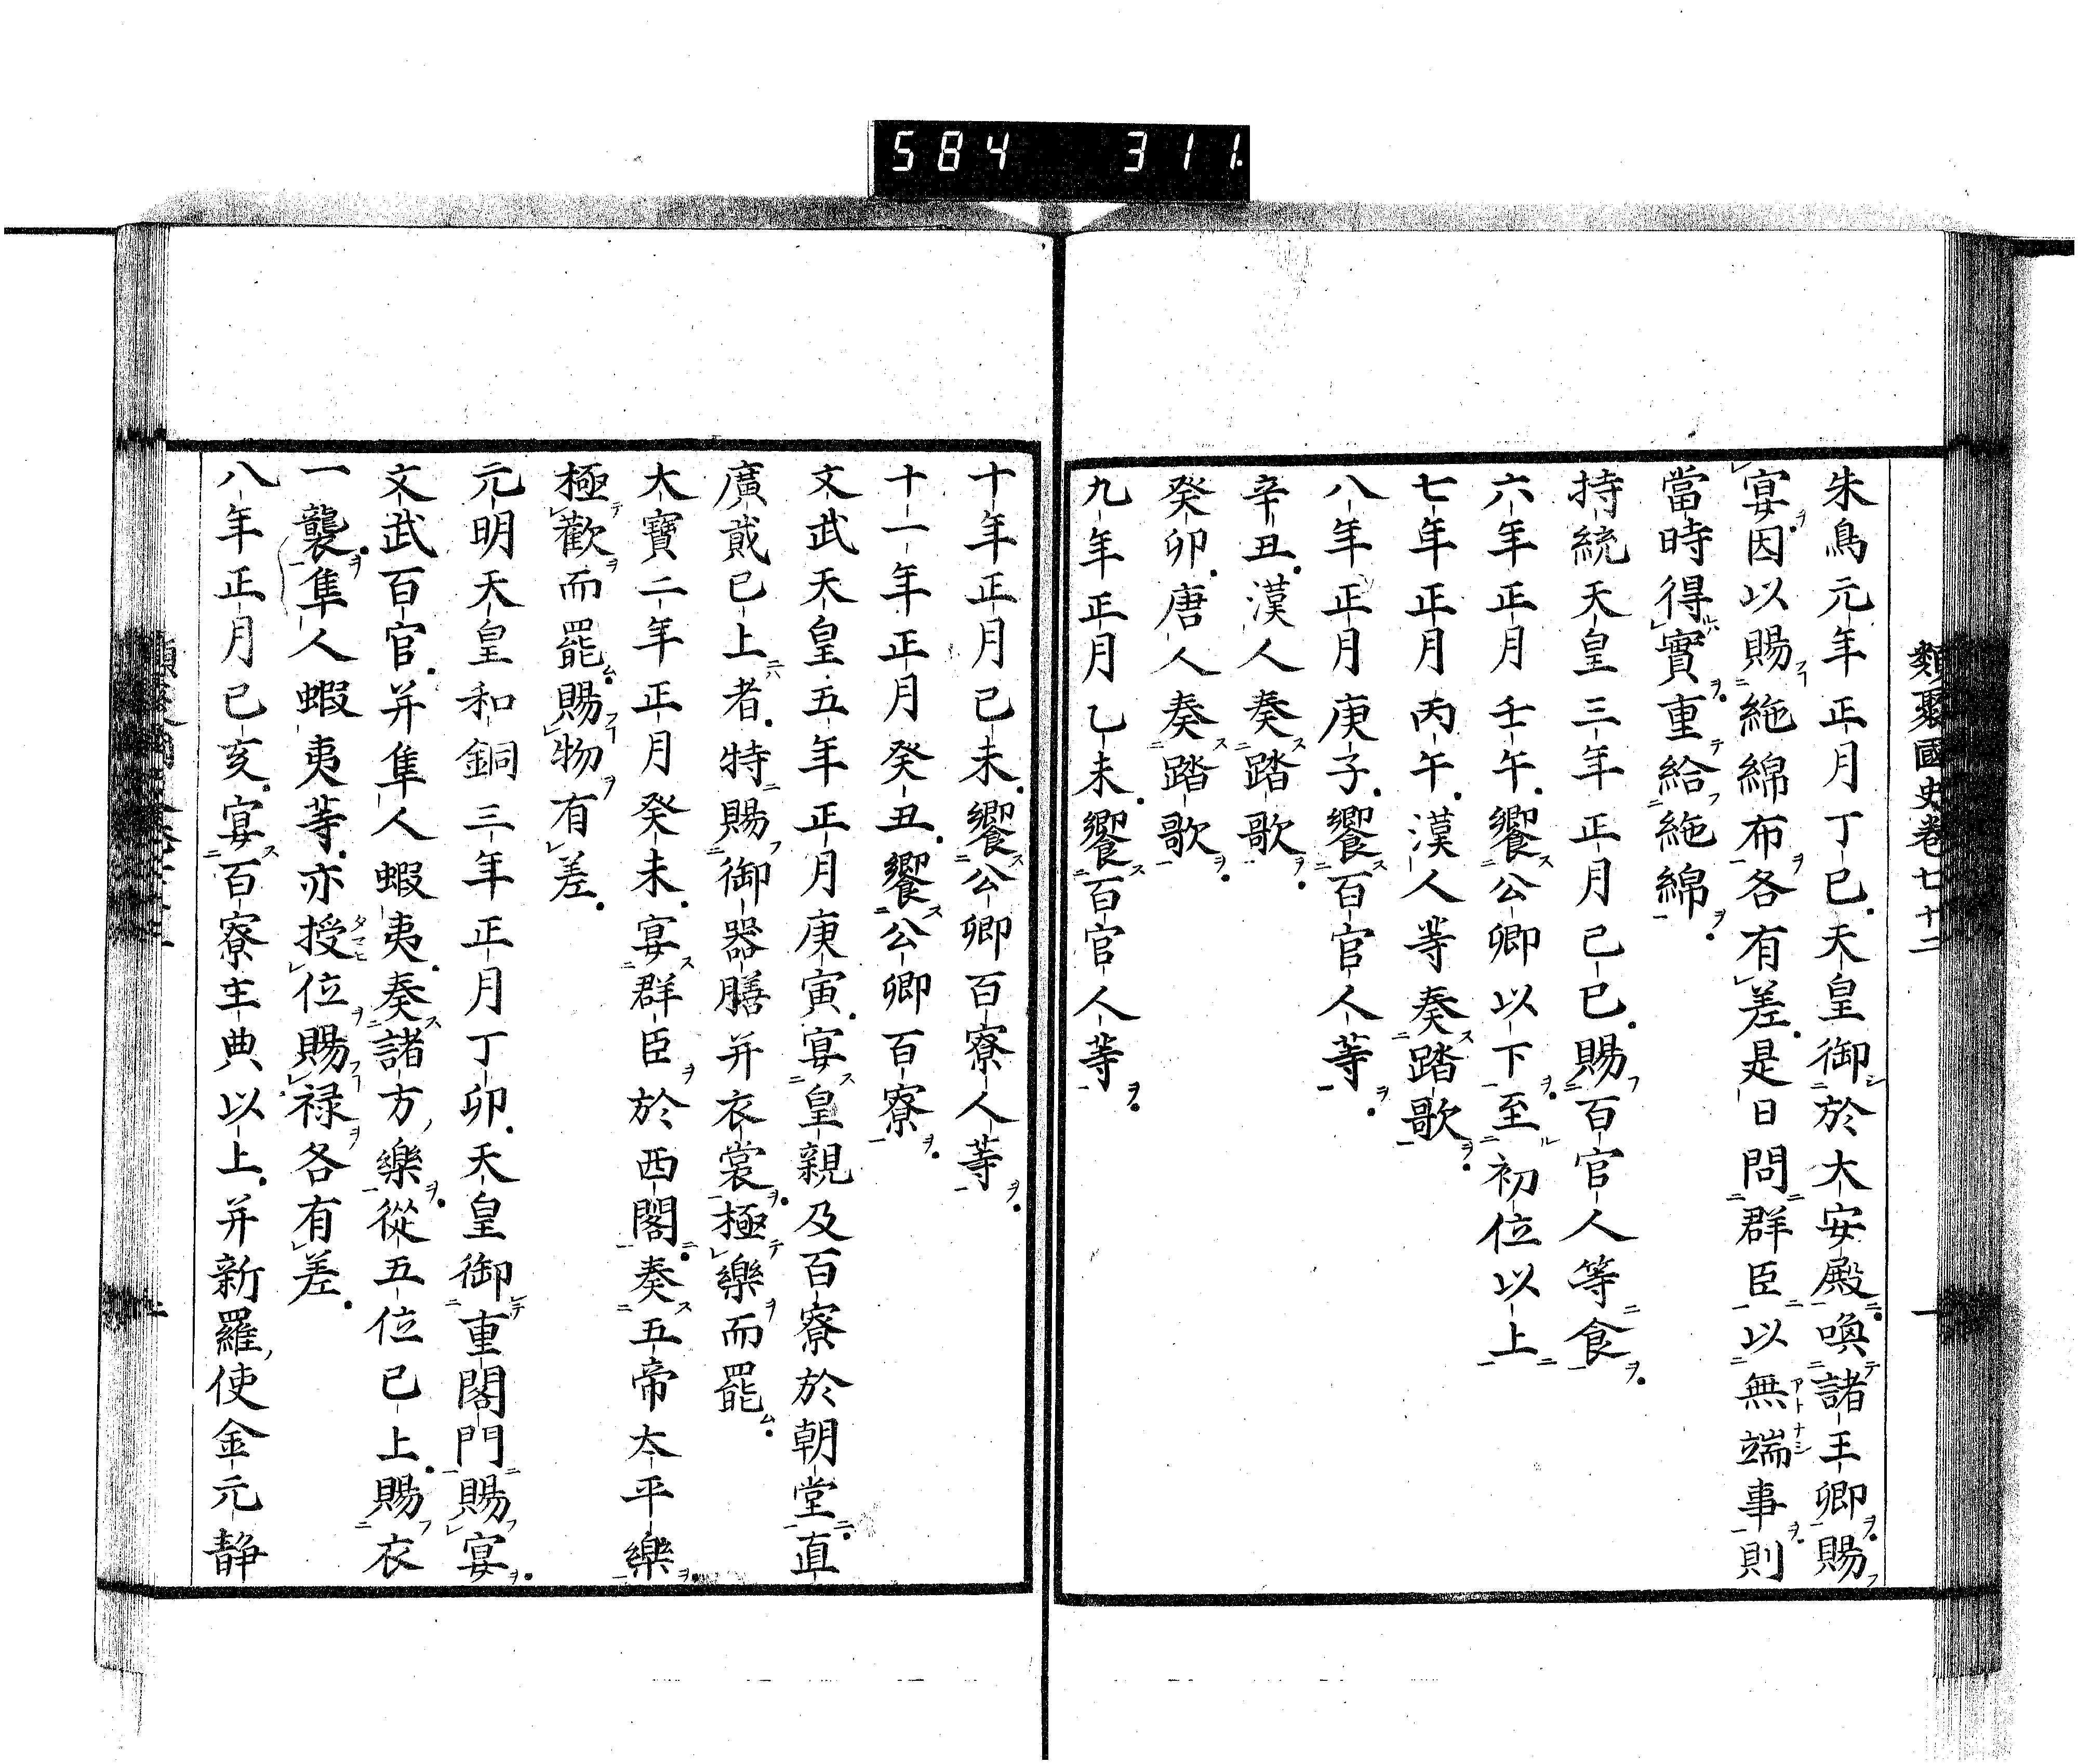 584 311
類聚國史卷七十二 一
朱鳥元年正月丁巳天皇御於大安殿喚諸王卿賜
宴因以賜絁綿布各有差是日問群臣以無端事則
當時得實重給絁綿
持統天皇三年正月己巳賜百官人等食
六年正月壬午饗公卿以下至初位以上
七年正月丙午漢人等奏踏歌
八年正月庚子饗百官人等
辛丑漢人奏踏歌
癸卯唐人奏踏歌
九年正月乙未饗百官人等
十年正月己未饗公卿百寮人等
十一年正月癸丑饗公卿百寮
文武天皇五年正月庚寅宴皇親及百寮於朝堂直
廣貳已上者特賜御器膳并衣裳極樂而罷
大寶二年正月癸未宴群臣於西閣奏五帝太平樂
極歡而罷賜物有差
元明天皇和銅三年正月丁卯天皇御重閣門賜宴
文武百官并隼人蝦夷奏諸方樂從五位已上賜衣
一襲隼人蝦夷等亦授位賜禄各有差
八年正月己亥宴百寮主典以上并新羅使金元静